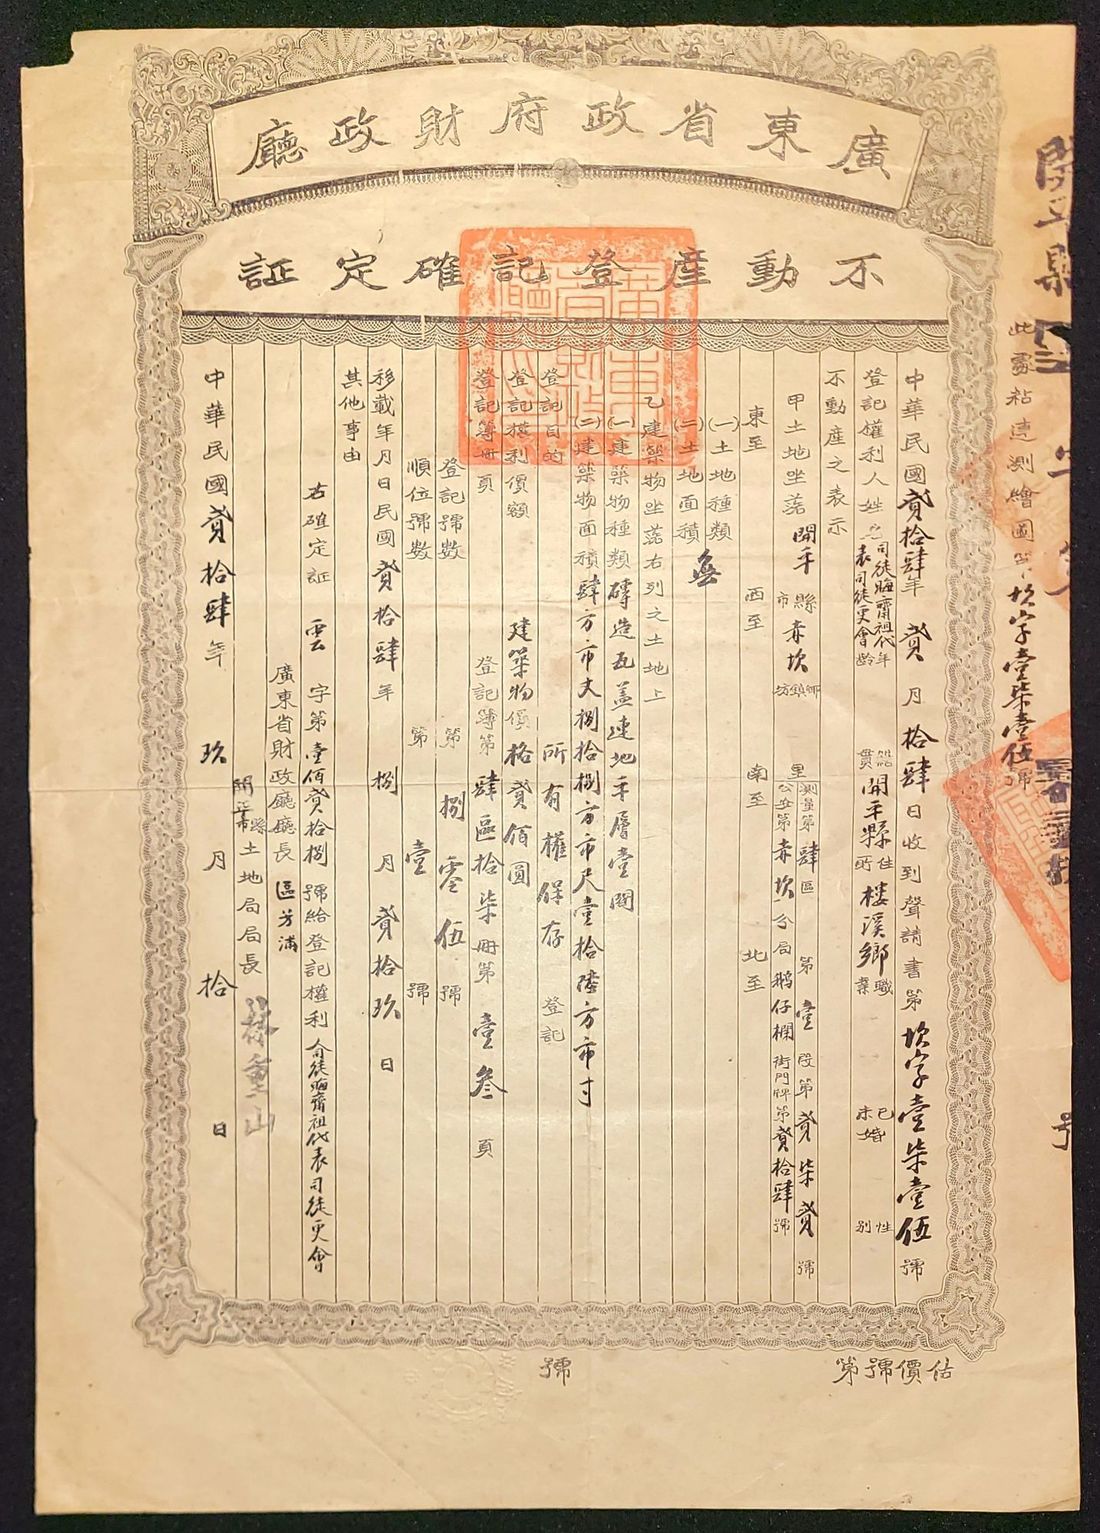 廣東省政府財政廳
不動產登記確定証
此處粘連測繪圖 坎字壹柒壹伍號
中華民國貳拾肆年貳月拾肆日收到聲請書第坎字壹柒壹伍號
登記權利人姓名 司徒晦齋祖代表司徒更會 年齡 籍貫 開平縣 住所 樓溪鄉 職業 已未婚 性別
不動產之表示
甲土地坐落 開平 縣市 赤坎 鄉鎮坊 里 測量第肆區 第壹段第貳柒貳號
公安第赤坎分局鵝仔欄街門牌第貳拾肆號
東至 西至 南至 北至
(一)土地種類
(二)土地面積 無
乙建築物坐落右列之土地上
(一)建築物種類 磚造瓦蓋連地平層壹間
(二)建築物面積 肆方市丈捌拾捌方市尺壹拾陸方市寸
登記目的 所有權保存 登記
登記權利價額 建築物價 貳佰圓
登記簿冊頁 登記簿第肆區拾柒冊第壹叁頁
登記號數 第捌零伍號
順位號數 第壹號
移載年月日民國貳拾肆年捌月貳拾玖日
其他事由
右確定証 雲字第壹佰貳拾捌號給登記權利 司徒晦齋祖代表司徒更會
廣東省財政廳廳長 區芳浦
開平縣市土地局局長 重山
中華民國貳拾肆年玖月拾日
估價號第 號